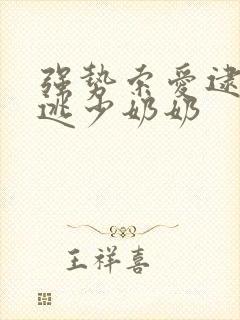 强势索爱逮
逃少奶奶
王祥喜